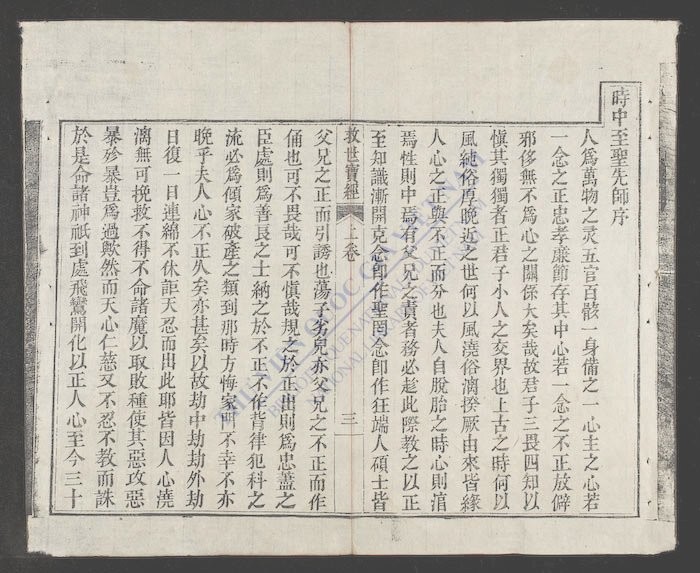 時中至聖先師序
人爲萬物之灵五官百骸一身備之一心主之心若
一念之正忠孝廉節存其中心若一念之不正放僻
邪侈無不爲心之關係大矣哉故君子三畏四知以
愼其獨獨者正君子小人之交界也上古之時何以
風純俗厚晚近之世何以風澆俗漓揆厥由來皆緣
人心之正與不正而分也夫人自脫胎之時心則渲
焉性則中焉有父兄之責者務必趁此際教之以正
至知識漸開克念卽作聖罔念卽作狂端人碩士皆
救世寶經 上卷 三
父兄之正而引誘也蕩子劣兒亦父兄之不正而作
俑也可不畏哉可不愼哉規之於正出則爲忠藎之
臣處則爲善良之士納之於不正不作背律犯科之
流必爲傾家破產之類到那時方悔家門不幸不亦
晚乎夫人心不正久矣亦甚矣以故劫中劫劫外劫
日復一日連綿不休詎天忍而出此耶皆因人心澆
漓無可挽救不得不命諸魔以取敗種使其惡攻惡
暴殄暴豈爲過歟然而天心仁慈又不忍不教而誅
於是命諸神祇到處飛鸞開化以正人心至今三十
THƯ VIỆN QUỐC GIA VIỆT NAM
BIBLIOTHÈQUE NATIONALE DU VIETNAM
NATIONAL LIBRARY OF VIETNAM